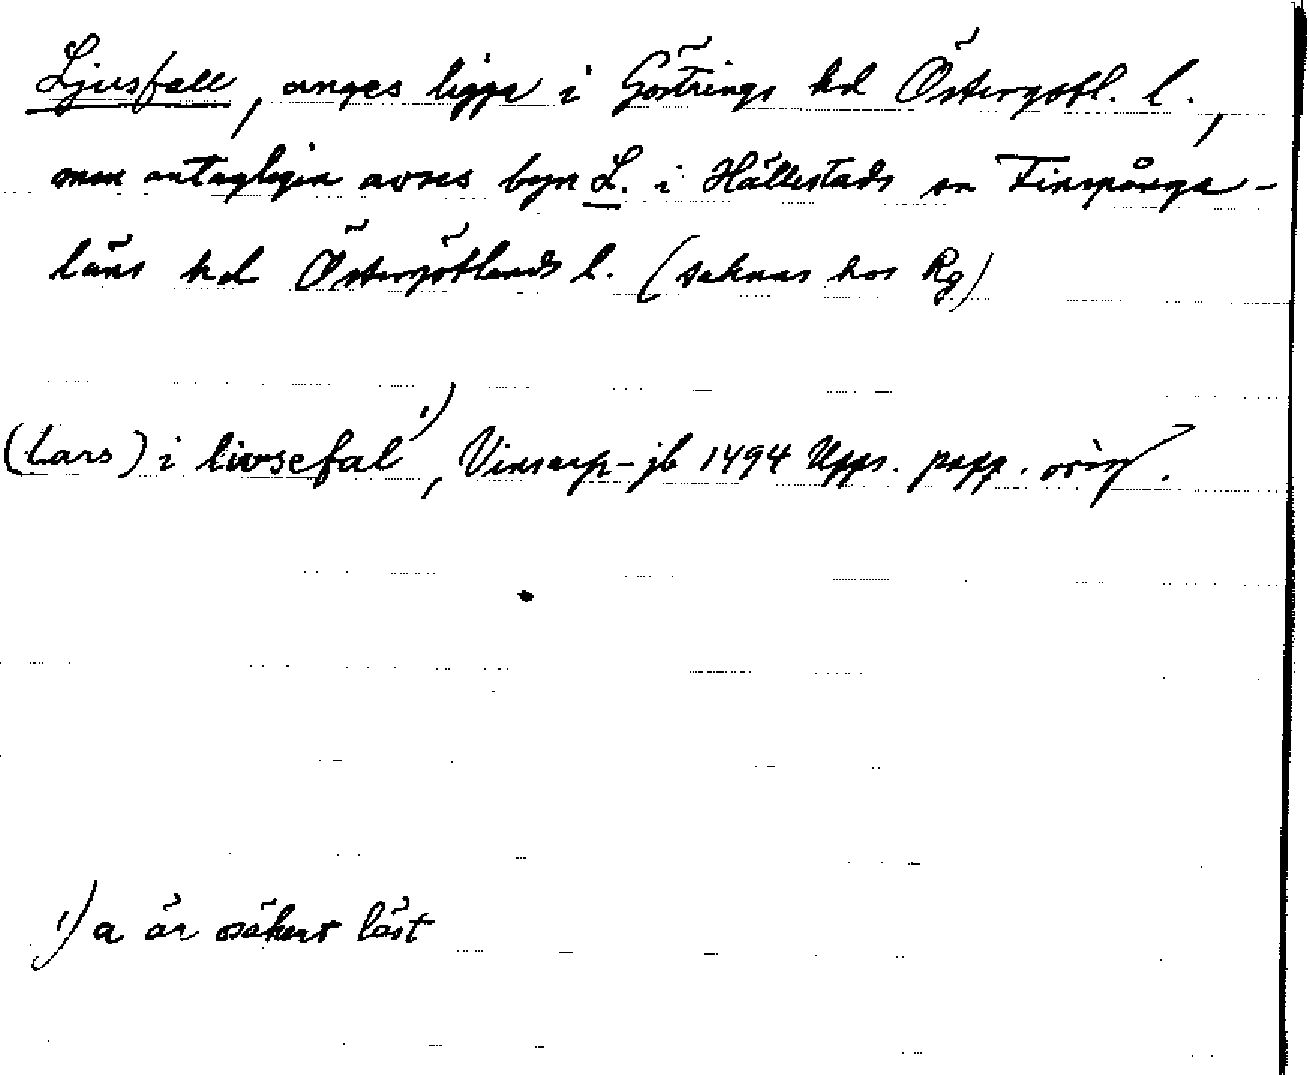 Ljusfall, anges ligga i Göstrings hd Östergötl. l.,
men antagligen avses byn L. i Hällestads sn Finspånga-
läns hd Östergötlands l. (saknas hos Rg)
(Lars) i livsefal ¹), Vinsarp-jb 1494 Upps. papp. orig.
¹) a är osäkert läst